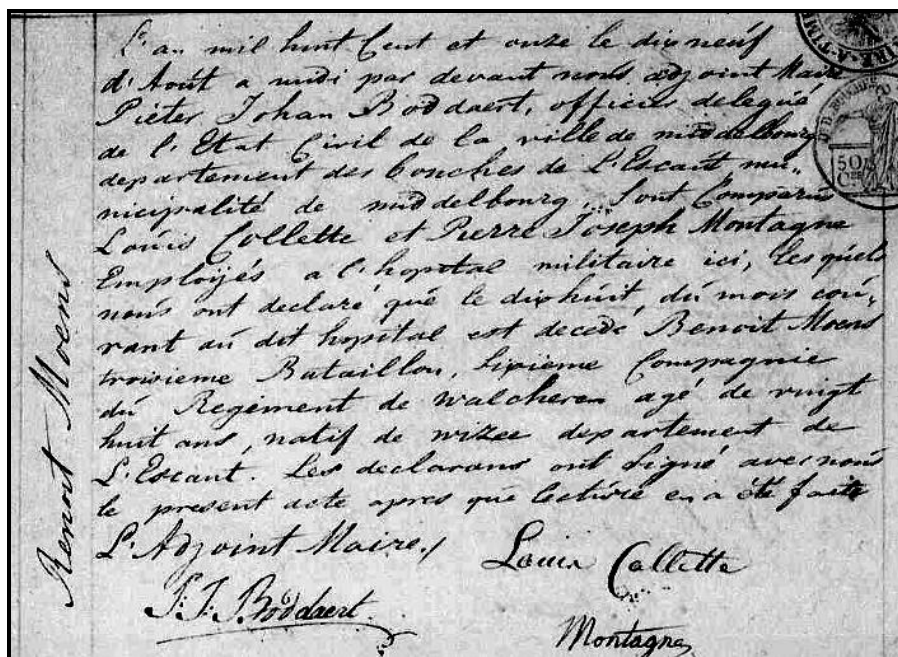 L'an mil huit Cent et onze le dix neuf
d'Août a midi par devant nous adjoint Maire
Pieter Johan Boddaert, officier delegué
de l'Etat Civil de la ville de middelbourg
departement des bouches de L'Escaut mu-
nicipalité de middelbourg, Sont Comparus
Louis Collette et Pierre Joseph Montagne
Employés a l'hopital militaire ici, lesquels
nous ont declaré que le dix huit, du mois cou-
rant au dit hopital est decedé Benoit Moens
troisieme Bataillon, Sixieme Compagnie
du Regiment de Walcheren agé de vingt
huit ans, natif de wizee departement de
L'Escaut. Les declarans ont Signé avec nous
le present acte apres que lecture en a été faite
L'Adjoint Maire./
P: J: Boddaert
Louis Collette
Montagne
Benoit Moens
50